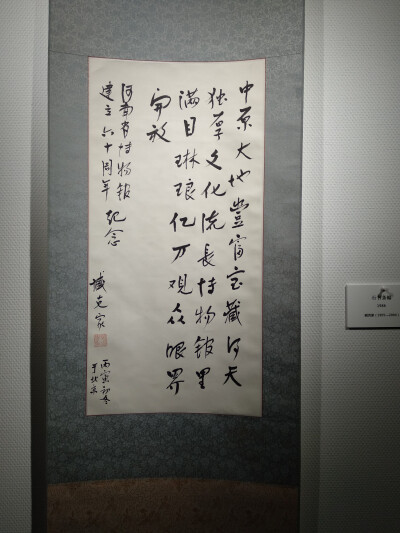 中原大地豐富宝藏得天
独厚文化流長博物館里
满目琳琅亿万观众眼界
開放
河南省博物館
建立六十周年紀念
臧克家
丙寅初冬
于北京